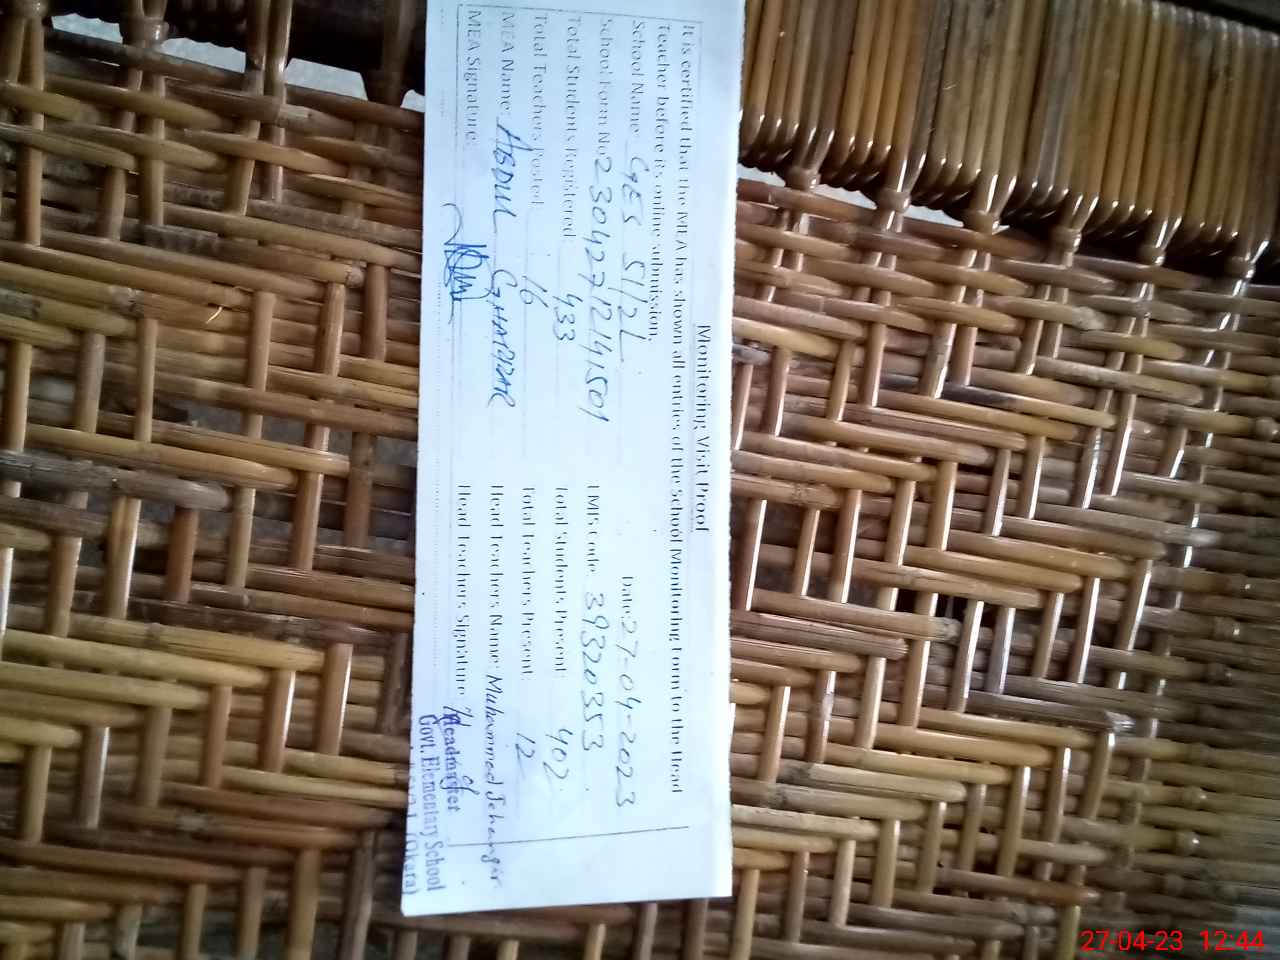 Monitoring Visit Proof
It is certified that the MEA has shown all entries of the School Monitoring Form to the Head
Teacher before its online submission.
School Name: GES 51/2L Date: 27-04-2023
School Form No 23042712141501 EMIS code: 39320353
Total Students Registered: 433 Total Students Present: 402
Total Teachers Posted: 16 Total Teachers Present: 12
MEA Name: ABDUL GHAFFAR Head Teachers Name: Muhammad Jehangir
MEA Signature: Head Teachers Signature:
Headmaster
Govt. Elementary School
(Okara)
27-04-23 12:44